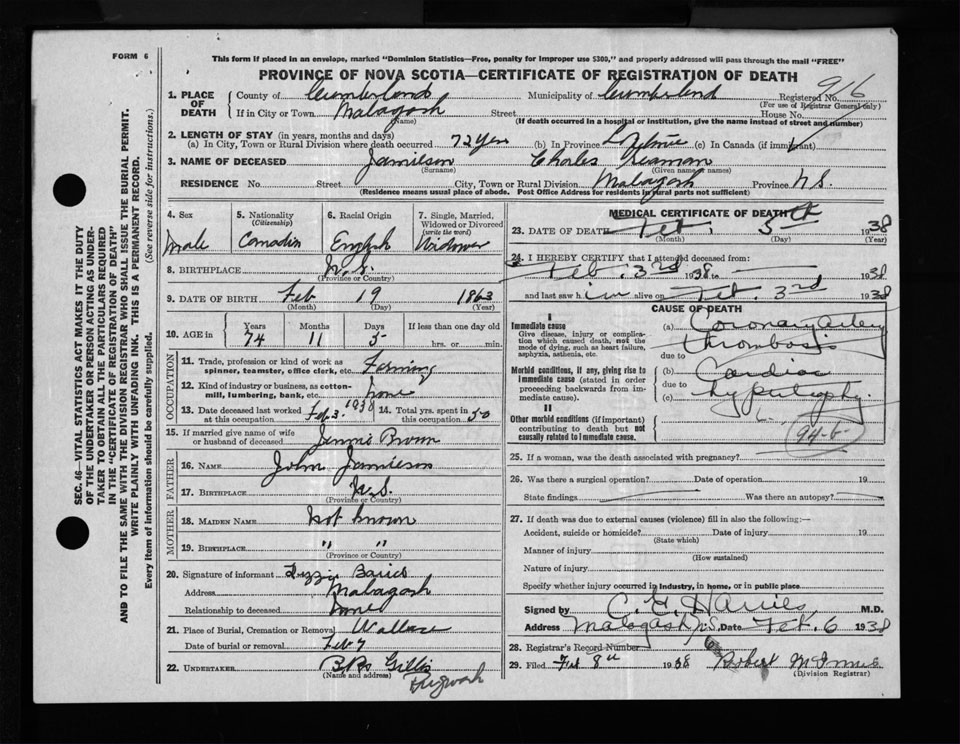 FORM 6
This form if placed in an envelope, marked "Dominion Statistics—Free, penalty for improper use $300," and properly addressed will pass through the mail "FREE"
PROVINCE OF NOVA SCOTIA—CERTIFICATE OF REGISTRATION OF DEATH
1. PLACE OF DEATH County of Cumberland Municipality of Cumberland Registered No. 916
(For use of Registrar General only)
If in City or Town Malagash Street House No.
(Name) (If death occurred in a hospital or institution, give the name instead of street and number)
2. LENGTH OF STAY (in years, months and days)
(a) In City, Town or Rural Division where death occurred 72 Yrs (b) In Province (c) In Canada (if immigrant)
3. NAME OF DECEASED Jamieson Charles Seaman
(Surname) (Given name or names)
RESIDENCE No. Street City, Town or Rural Division Malagash Province N.S.
(Residence means usual place of abode. Post Office Address for residents in rural parts not sufficient)
4. Sex 5. Nationality 6. Racial Origin 7. Single, Married, Widowed or Divorced
(Citizenship) (write the word)
Male Canadin English Widower
8. BIRTHPLACE N.S.
(Province or Country)
9. DATE OF BIRTH Feb 19 1863
(Month) (Day) (Year)
10. AGE in Years Months Days If less than one day old
74 11 5 hrs. or min.
OCCUPATION
11. Trade, profession or kind of work as spinner, teamster, office clerk, etc. Farming
12. Kind of industry or business, as cotton-mill, lumbering, bank, etc. none
13. Date deceased last worked at this occupation Feb 3 1938 14. Total yrs. spent in this occupation 50
15. If married give name of wife or husband of deceased Jennie Brown
FATHER
16. NAME John Jamieson
17. BIRTHPLACE N.S.
(Province or Country)
MOTHER
18. MAIDEN NAME Not known
19. BIRTHPLACE " "
(Province or Country)
20. Signature of informant
Address Malagash
Relationship to deceased none
21. Place of Burial, Cremation or Removal Wallace
Date of burial or removal Feb 7
22. UNDERTAKER Gillis
(Name and address)
Pugwash
MEDICAL CERTIFICATE OF DEATH
23. DATE OF DEATH Feb. 5th 1938
(Month) (Day) (Year)
24. I HEREBY CERTIFY that I attended deceased from:
Feb. 3rd 1938 to 1938
and last saw him alive on Feb. 3rd 1938
CAUSE OF DEATH
I
Immediate cause
Give disease, injury or complication which caused death, not the mode of dying, such as heart failure, asphyxia, asthenia, etc.
(a) Coronary artery thrombosis
due to
Morbid conditions, if any, giving rise to immediate cause (stated in order proceeding backwards from immediate cause).
(b) Cardiac
due to
(c) hypertrophy.
II
Other morbid conditions (if important) contributing to death but not causally related to immediate cause.
94-b
25. If a woman, was the death associated with pregnancy?
26. Was there a surgical operation? Date of operation 19
State findings Was there an autopsy?
27. If death was due to external causes (violence) fill in also the following:—
Accident, suicide or homicide? Date of injury 19
(State which)
Manner of injury
(How sustained)
Nature of injury
Specify whether injury occurred in industry, in home, or in public place
Signed by M.D.
Address Malagash N.S. Date Feb. 6 1938
28. Registrar's Record Number
29. Filed Feb 8th 1938 Robert McInnis
(Division Registrar)
SEC. 46—VITAL STATISTICS ACT MAKES IT THE DUTY
OF THE UNDERTAKER OR PERSON ACTING AS UNDER-
TAKER TO OBTAIN ALL THE PARTICULARS REQUIRED
IN THE "CERTIFICATE OF REGISTRATION OF DEATH"
AND TO FILE THE SAME WITH THE DIVISION REGISTRAR WHO SHALL ISSUE THE BURIAL PERMIT.
WRITE PLAINLY WITH UNFADING INK. THIS IS A PERMANENT RECORD.
Every item of information should be carefully supplied. (See reverse side for instructions.)